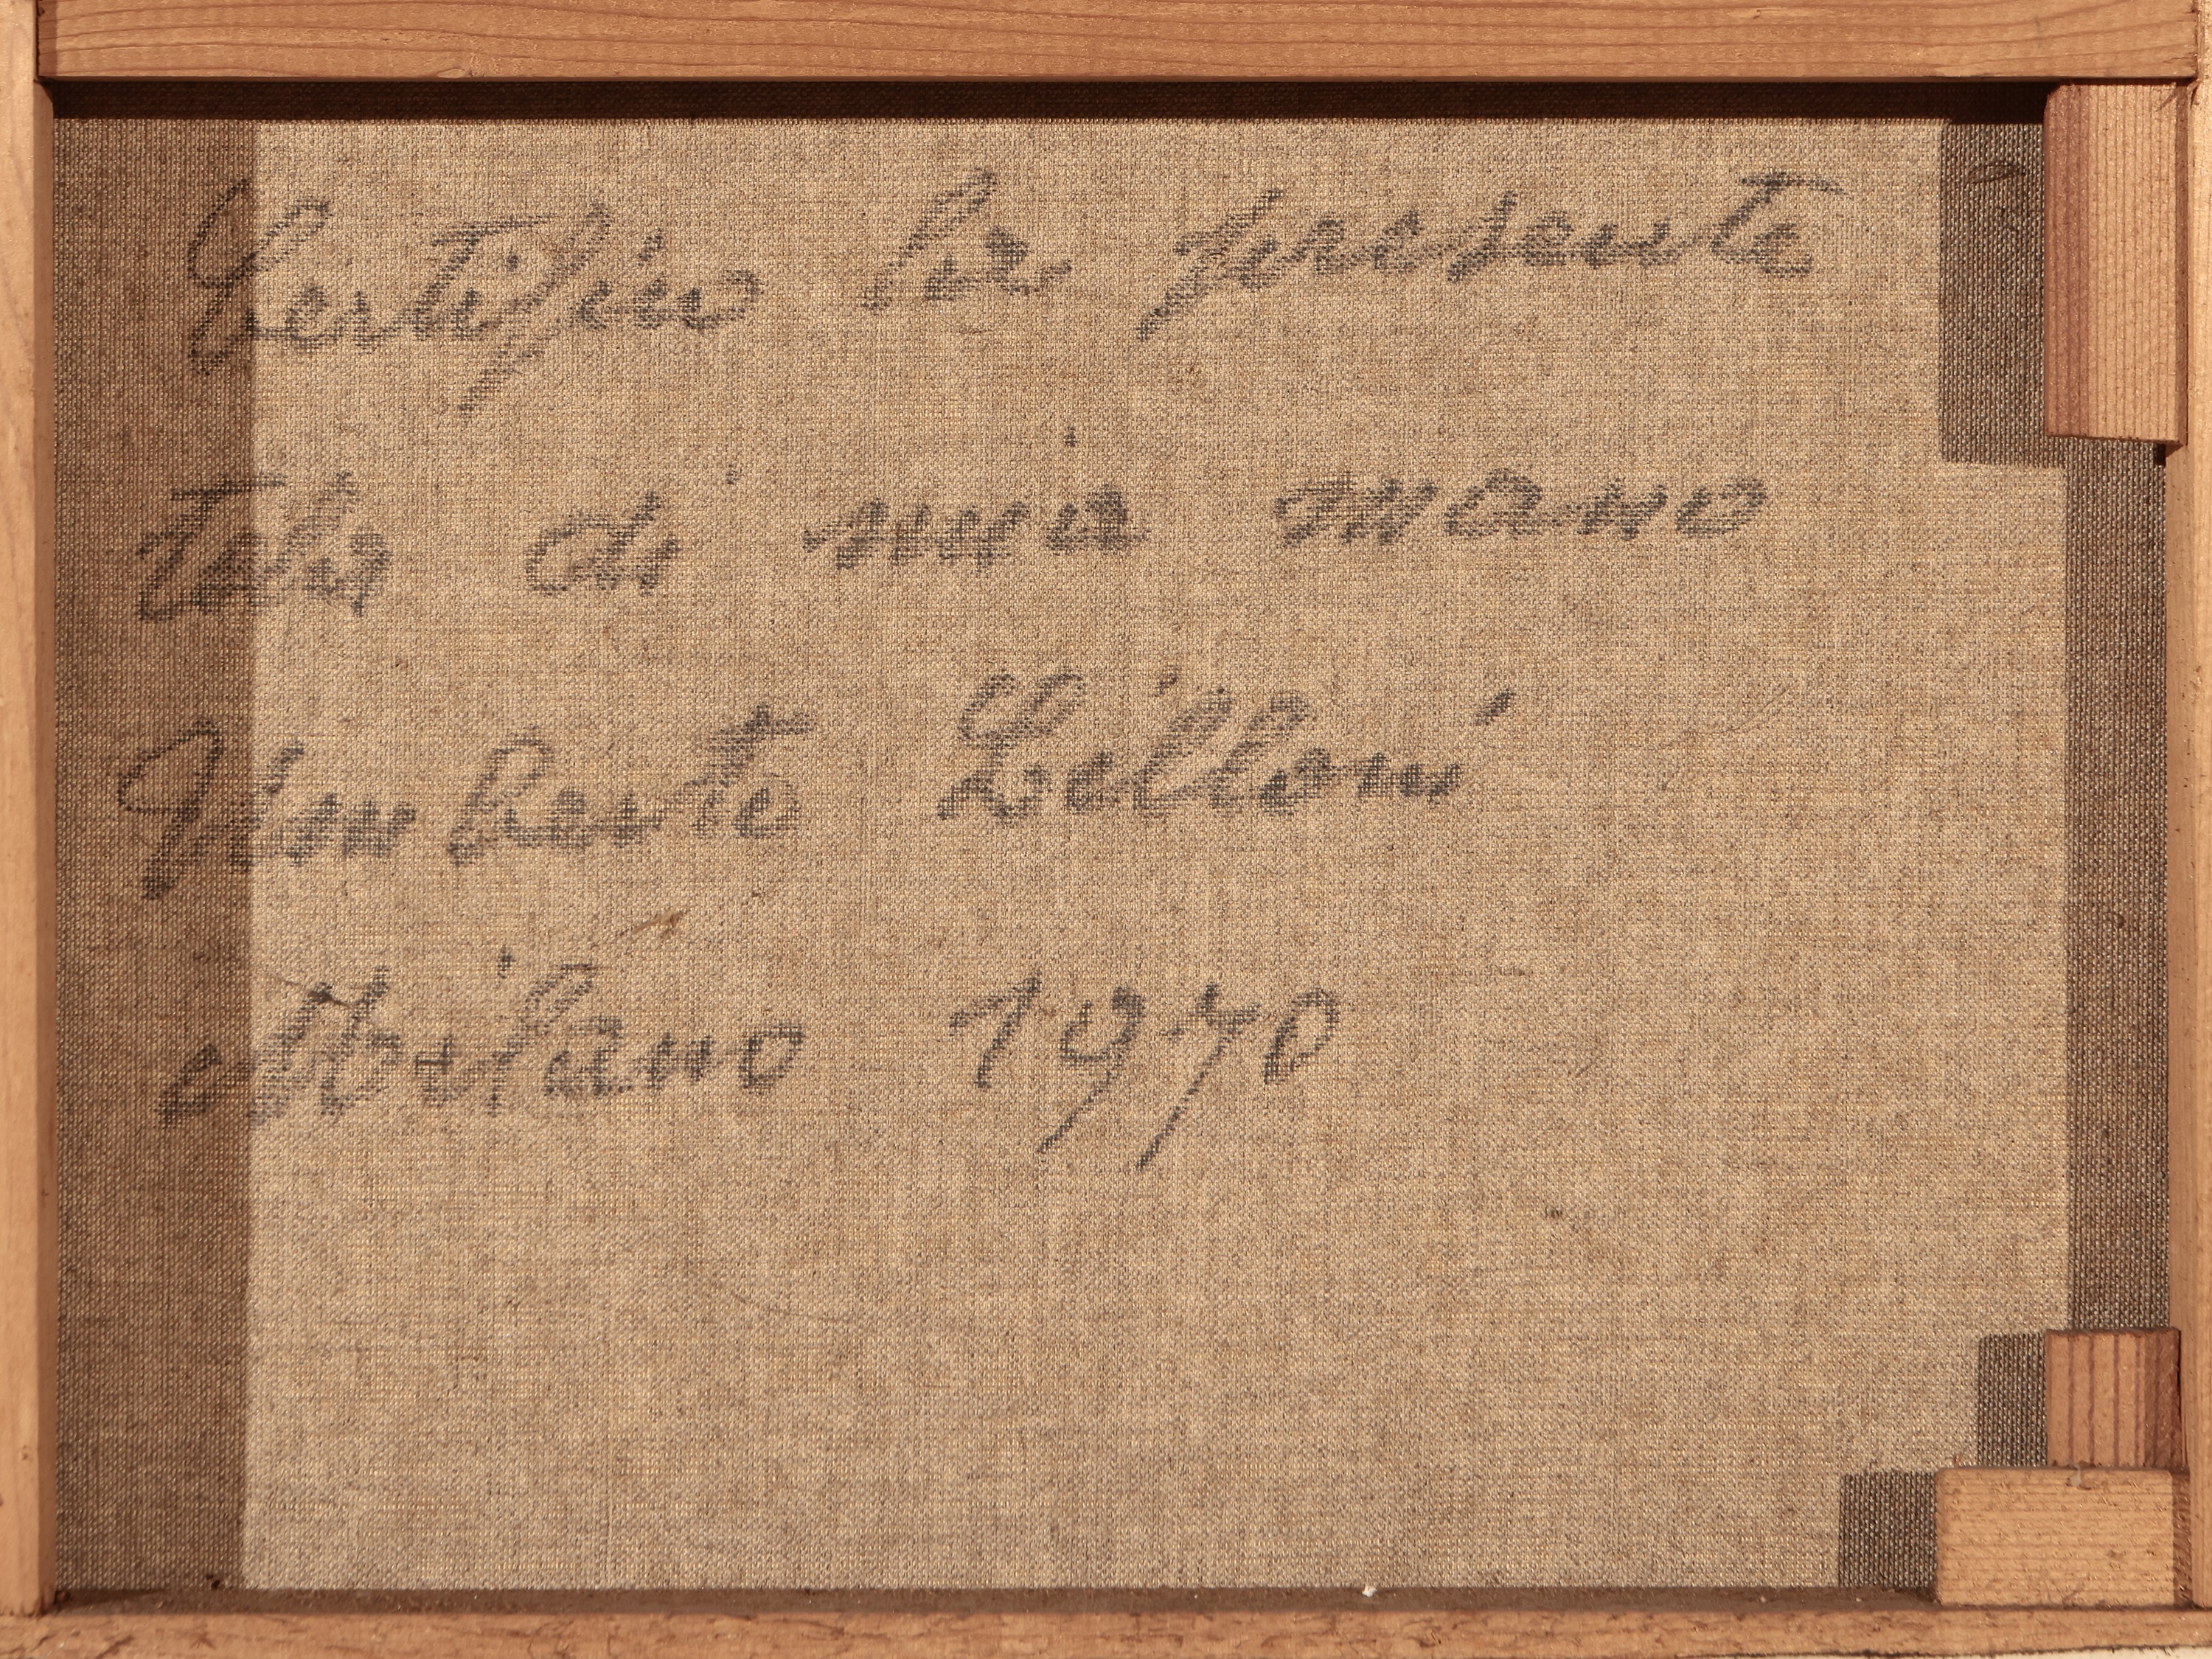 Certifico la presente
Tela di mia mano
Umberto Lilloni
Milano 1970